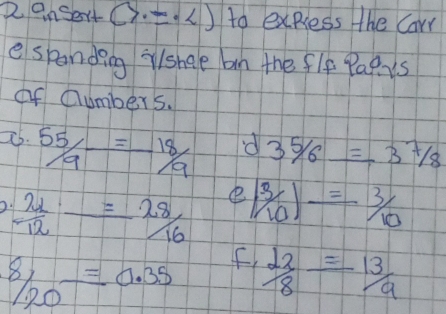 2 Insert (>. =. <) to express the Corr
esponding r/shep bn the f/f Paairs
of numbers.
a. 55/9 = 18/9   d 3 5/6 = 3 7/8
b. 21/12 = 28/16   e |3/10| = 3/10
8/20 = 0.35   f, 12/8 = 13/9